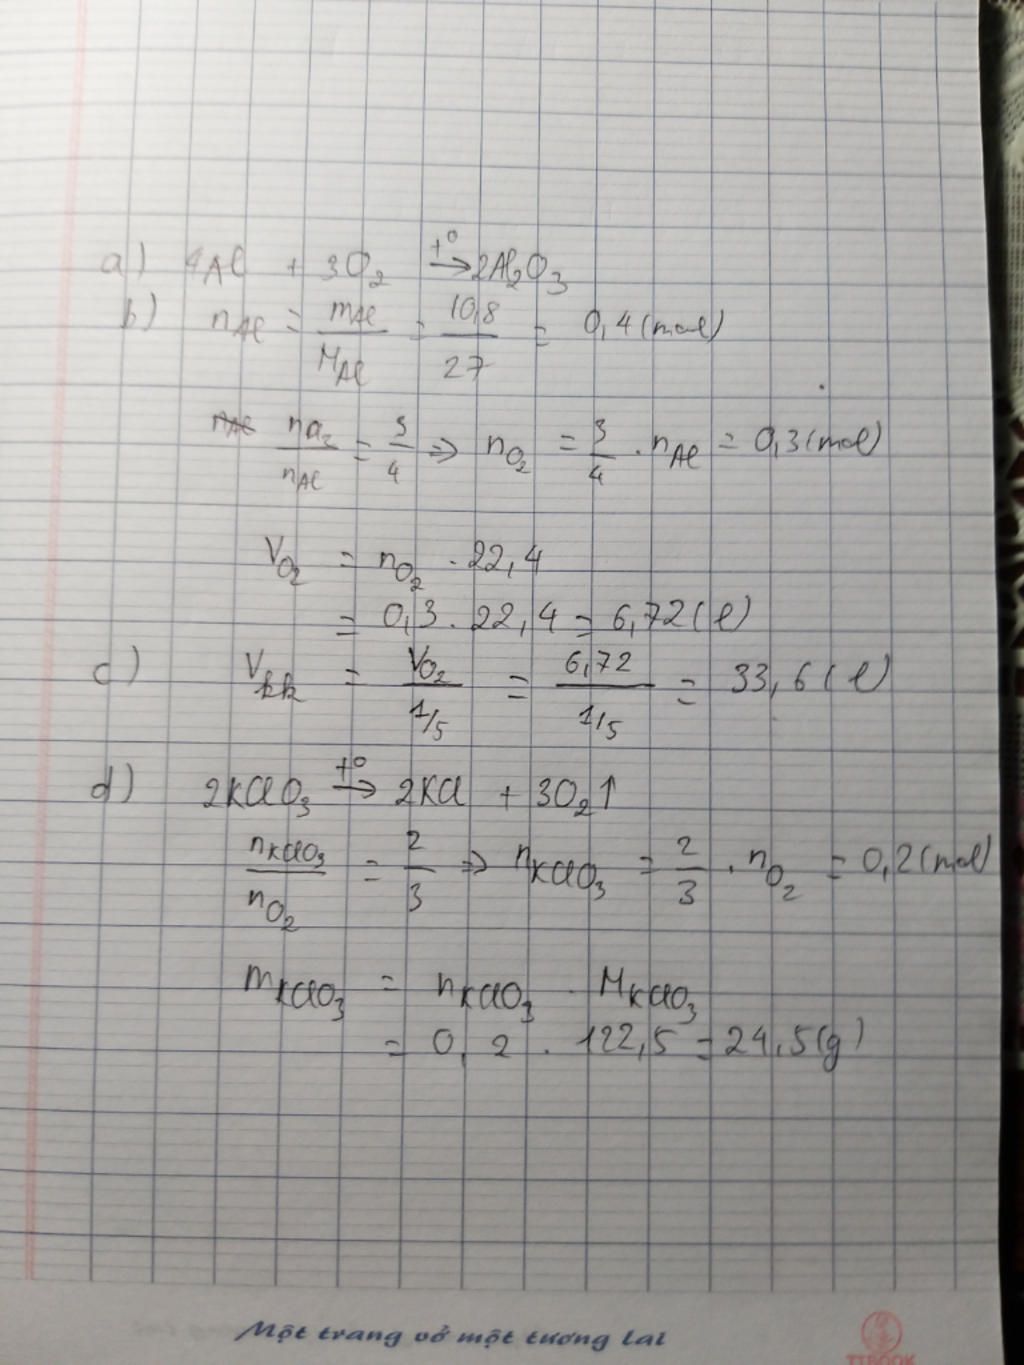 a) 4Al + 3O2 t°→ 2Al2O3
b) nAl = mAl/MAl = 10,8/27 = 0,4 (mol)
nAl nO2/nAl = 3/4 => nO2 = 3/4 . nAl = 0,3 (mol)
VO2 = nO2 . 22,4
= 0,3 . 22,4 = 6,72 (l)
c) Vkk = VO2/1/5 = 6,72/1/5 = 33,6 (l)
d) 2KClO3 t°→ 2KCl + 3O2↑
nKClO3/nO2 = 2/3 => nKClO3 = 2/3 . nO2 = 0,2 (mol)
mKClO3 = nKClO3 . MKClO3
= 0,2 . 122,5 = 24,5 (g)
Một trang vở một tương lai
TTBOOK